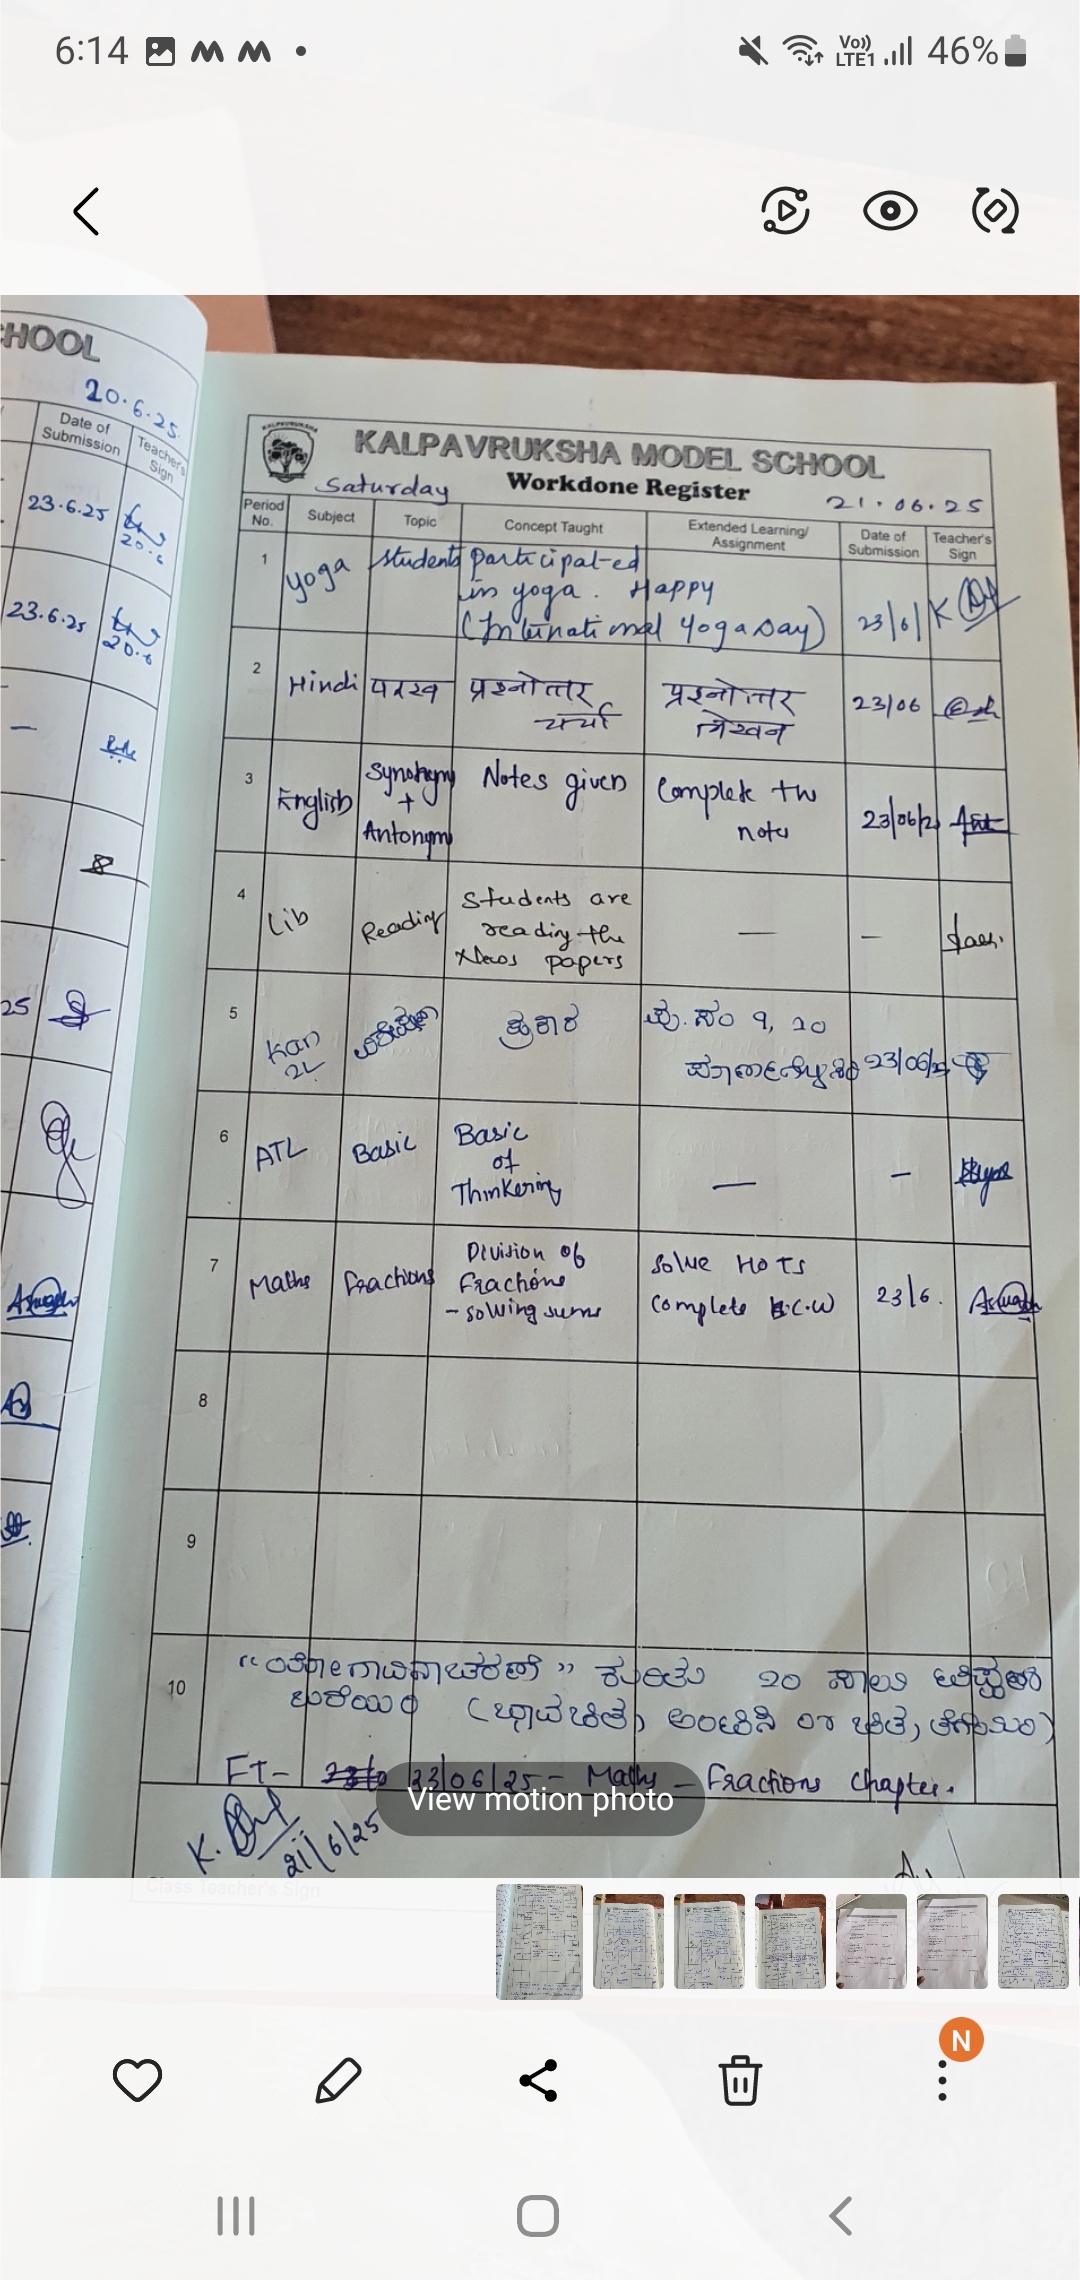 6:14
Vo))
LTE1
46%
CHOOL
20.6.25
Date of Submission
Teacher's Sign
23.6.25
20.6
23.6.25
20.6
25
KALPAVRUKSHA MODEL SCHOOL
Workdone Register
Saturday
21.06.25
Period No.
Subject
Topic
Concept Taught
Extended Learning/ Assignment
Date of Submission
Teacher's Sign
1
yoga
students participat-ed
in yoga. Happy
(International Yoga Day)
23/6/
2
Hindi
परख
प्रश्नोत्तर
चर्चा
प्रश्नोत्तर
लेखन
23/06
3
English
Synonym
+
Antonym
Notes given
Complete the
notes
23/06/2
4
Lib
Reading
Students are
reading the
News papers
—
—
5
Kan
2L
ಪ್ರಕಾರ
ಪು.ಸಂ 9, 10
23/06/25
6
ATL
Basic
Basic
of
Thinkering
—
—
7
Maths
Fractions
Division of
Fractions
- solving sums
Solve HOTS
Complete C.W
23/6.
8
9
10
ಕುರಿತು 20 ಸಾಲು
ಬರೆಯಿರಿ (ಭಾವಚಿತ್ರ ಅಂಟಿಸಿ or ಚಿತ್ರ
FT- 23/06/25 - Maths - Fractions Chapter.
View motion photo
K.
21/6/25
Class Teacher's Sign
N